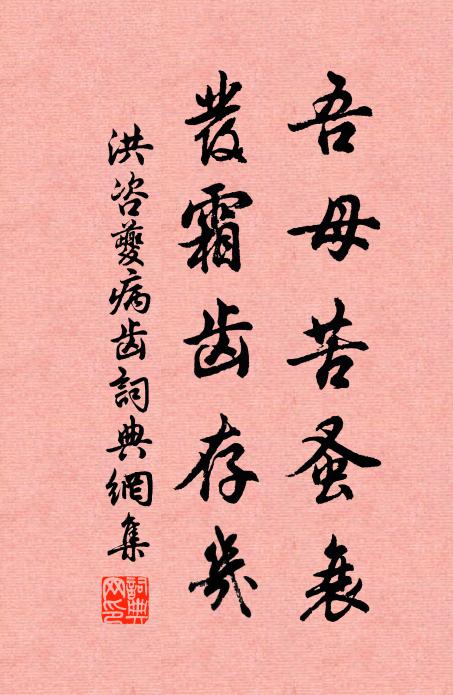 吾母苦蚤衰
发霜齿存几
洪咨夔病齿詞典網集
詞典网印